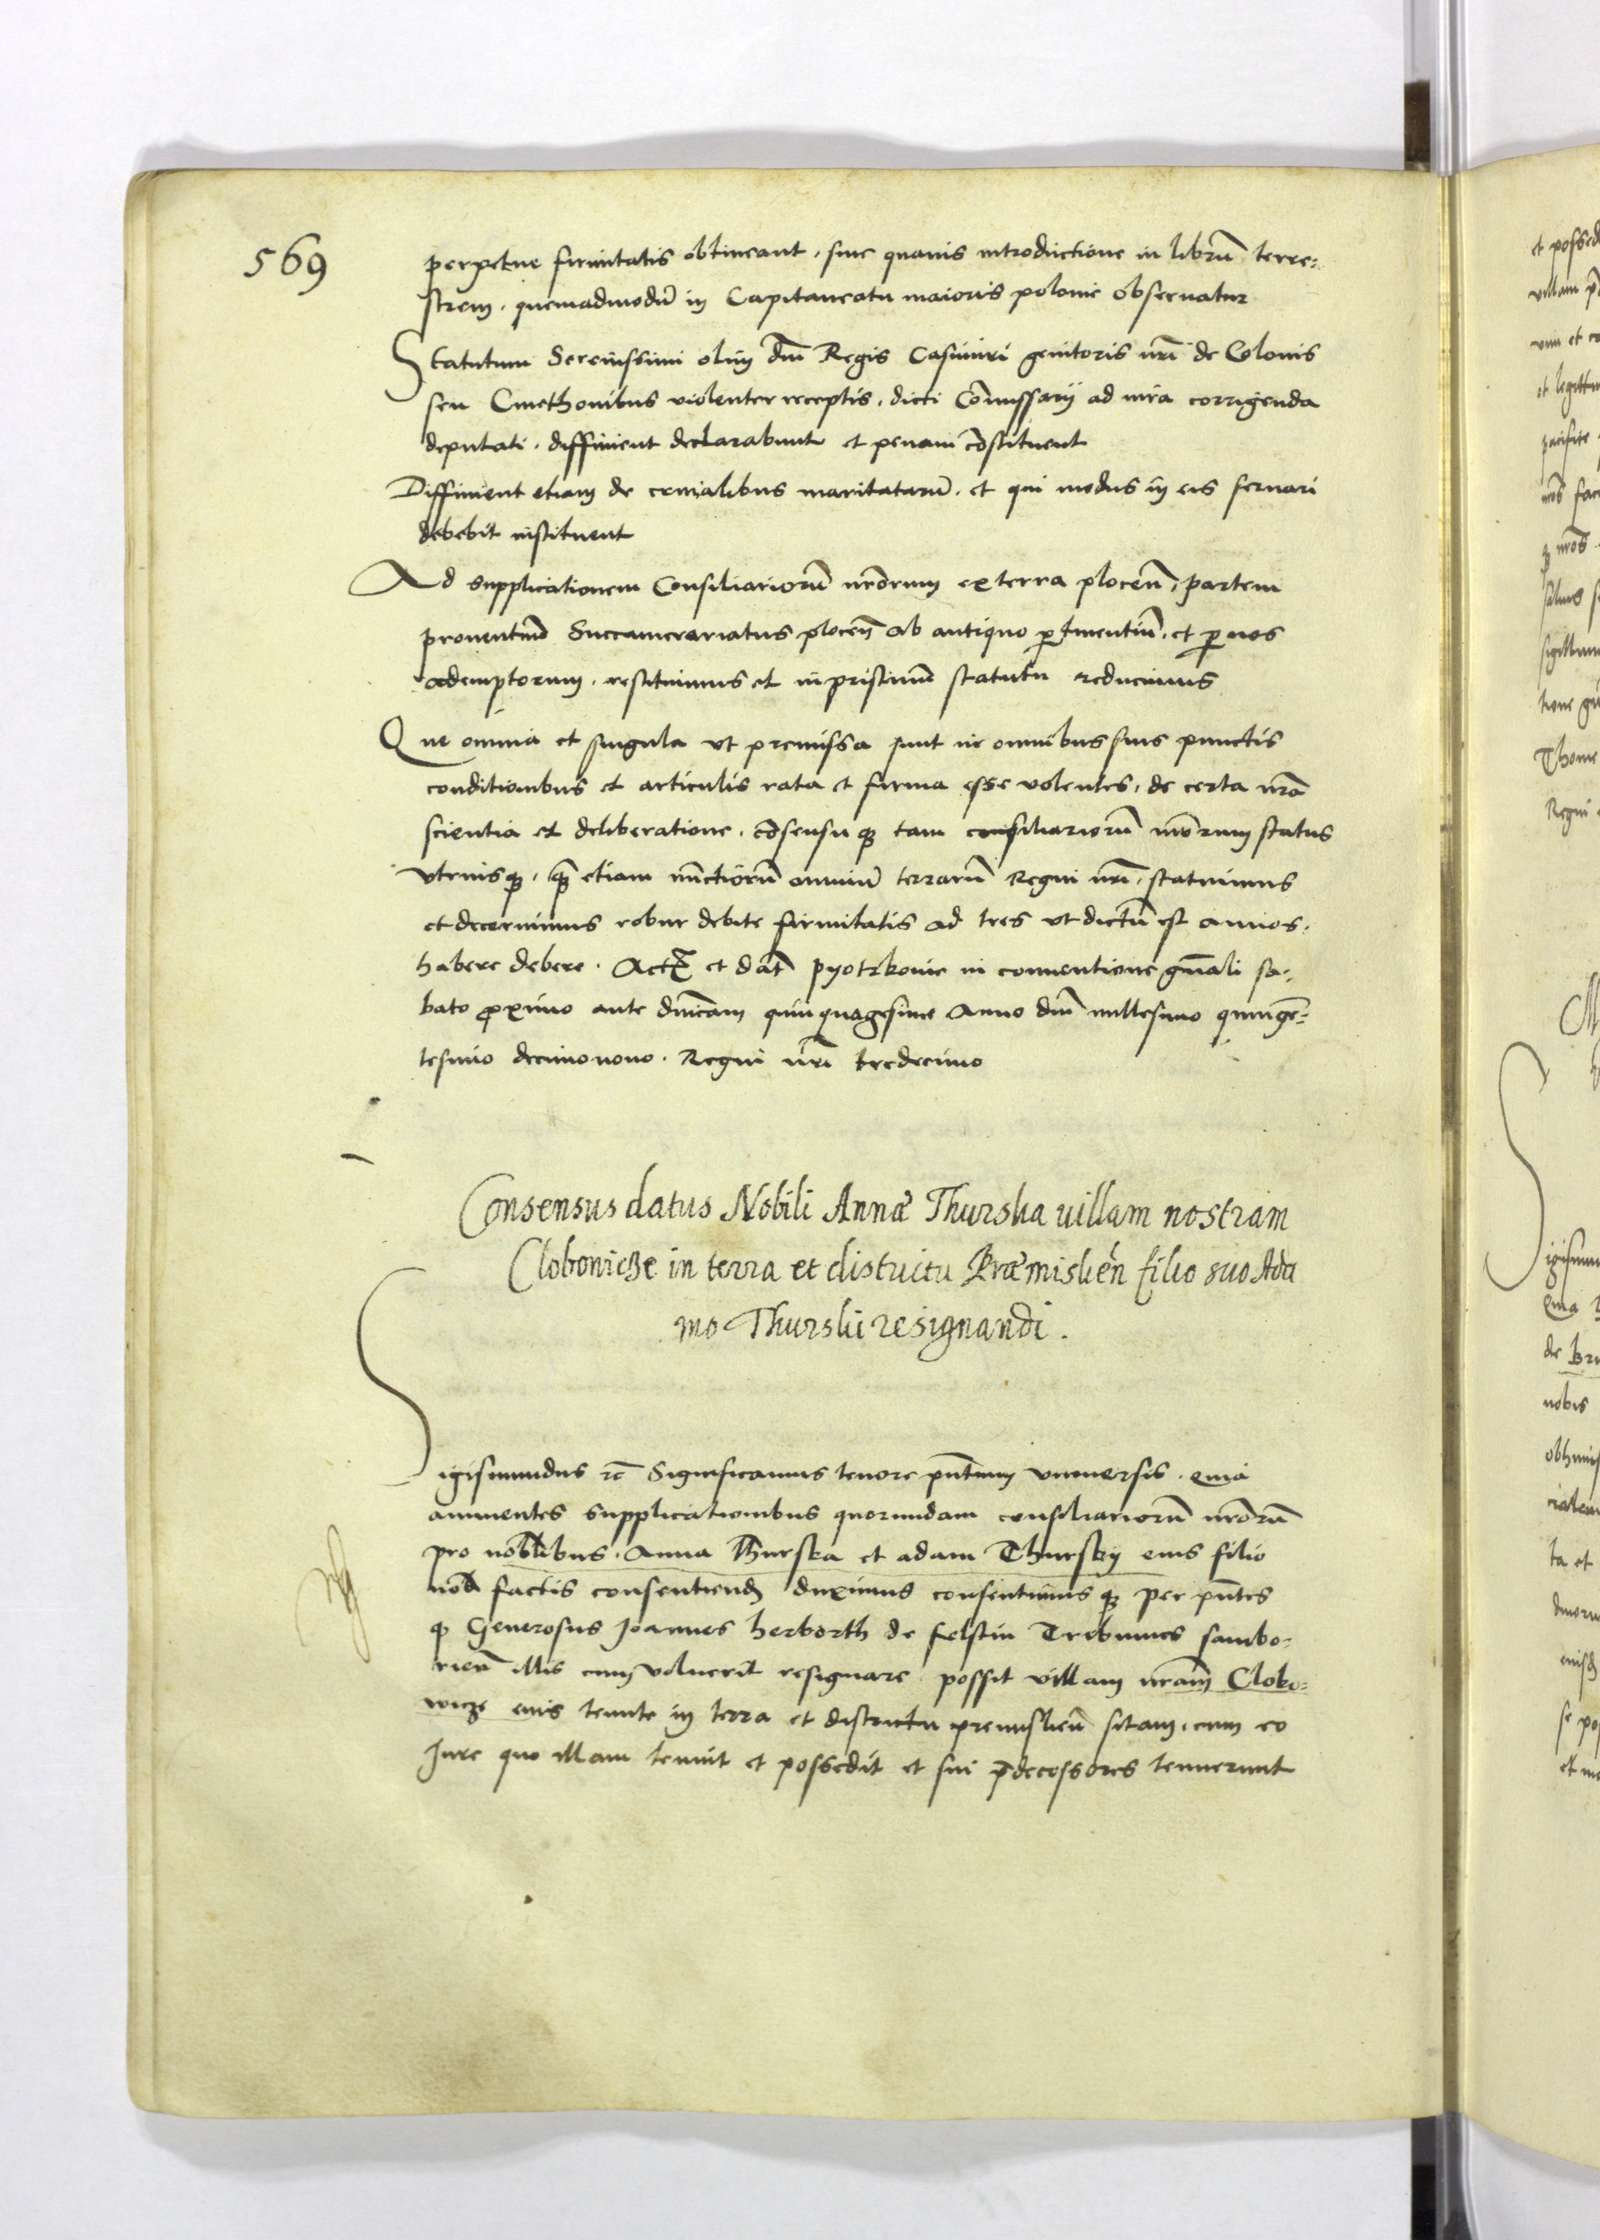 569
perpetue firmitatis obtineant, sine quavis introductione in librū terre-
strem, quemadmodū in Capitaneatu maioris polonie observatur
Statutum Serenissimi olim dm̄ Regis Casimiri genitoris nr̄i de Colonis
seu Cmethonibus violenter receptis, dicti Com̄issarij ad iura corrigenda
deputati, diffinient declarabunt et penam cōstituent
Diffinient etiam de crinalibus maritatarū, et qui modus in eis servari
debebit instituent
Ad supplicationem Consiliariorū nr̄orum ex terra plocen̄, partem
proventuū Succamerariatus plocen̄ ab antiquo ptinentiū, et p nos
ademptorum, restituimus et in pristinum statutu reducimus
Que omnia et singula ut premissa sunt in omnibus suis punctis
conditionibus et articulis rata et firma esse volentes, de certa nr̄a
scientia et deliberatione, cōsensu q₃ tam consiliariorū nr̄orum status
utriusq₃, q₃ etiam nūctiorū omniū terrarū Regni nr̄i, statuimus
et decernimus robur debite firmitatis ad tres ut dictū est annos,
habere debere. Act̄ et dat̄ pyotrkovie in conventione gn̄ali sa-
bato proximo ante dn̄icam quinquagesime Anno dn̄i millesimo quingē-
tesimo decimonono. Regni nr̄i tredecimo
Consensus datus Nobili Annæ Thurska villam nostram
Clobovicze in terra et districtu Præmislień filio suo Ada
mo Thurski resignandi.
Sigismundus rc̄ Significamus tenore pn̄tium universis, quia
annuentes supplicationibus quorundam consiliariorū nr̄orū
pro nobilibus, Anna Thurska et adam Thursky eius filio
nob̄ factis consentiend̄ duximus consentimus q₃ per pn̄tes
q̄ Generosus Joannes herborth de felstin Tribunus sambo-
rien̄ illis cum voluerit resignare possit villam nr̄am Clobo-
wicze eius tenute in terra et districtu premislien̄ sitam, cum eo
Jure quo illam tenuit et possedit et sui p̄decessores tenuerunt